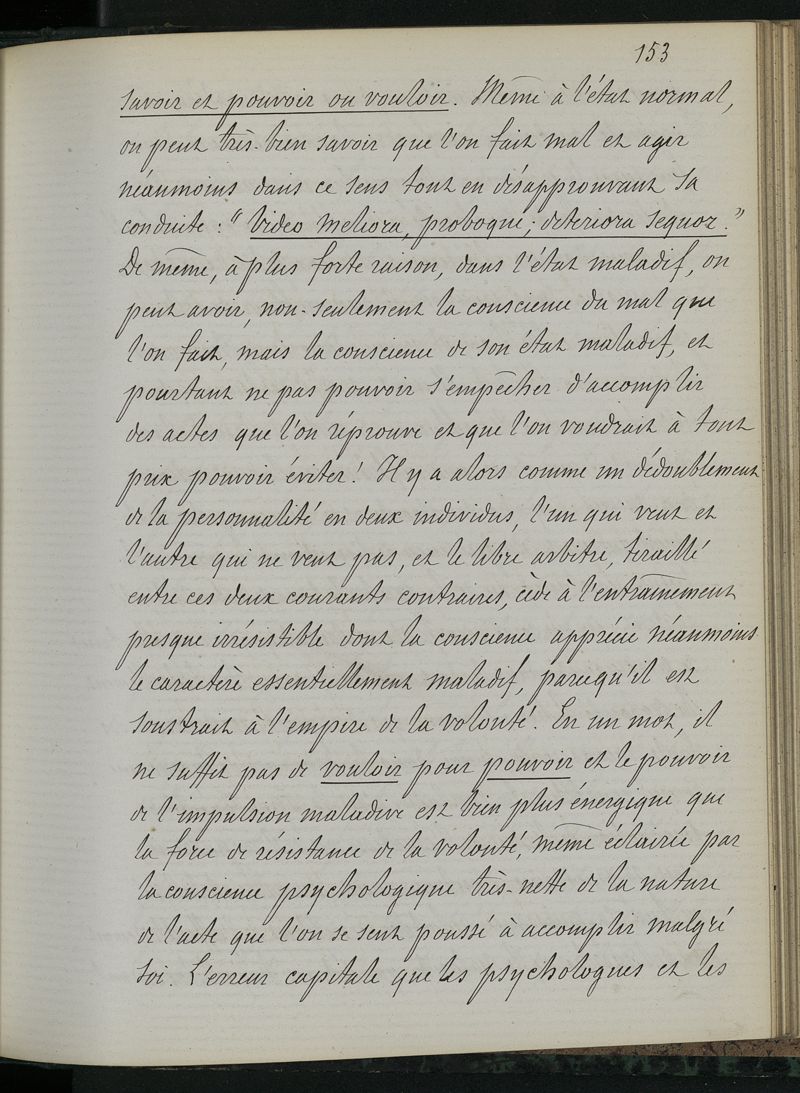 153
savoir et pouvoir ou vouloir. Même à l'état normal,
on peut très-bien savoir que l'on fait mal et agir
néanmoins dans ce sens tout en désapprouvant sa
conduite : " Video meliora, proboque; deteriora sequor."
De même, à plus forte raison, dans l'état maladif, on
peut avoir, non-seulement la conscience du mal que
l'on fait, mais la conscience de son état maladif, et
pourtant ne pas pouvoir s'empêcher d'accomplir
des actes que l'on réprouve et que l'on voudrait à tout
prix pouvoir éviter! Il y a alors comme un dédoublement
de la personnalité en deux individus, l'un qui veut et
l'autre qui ne veut pas, et le libre arbitre, tiraillé
entre ces deux courants contraires, cède à l'entraînement
presque irrésistible dont la conscience apprécie néanmoins
le caractère essentiellement maladif, parcequ'il est
soustrait à l'empire de la volonté. En un mot, il
ne suffit pas de vouloir pour pouvoir et le pouvoir
de l'impulsion maladive est bien plus énergique que
la force de résistance de la volonté, même éclairée par
la conscience psychologique très-nette de la nature
de l'acte que l'on se sent poussé à accomplir malgré
soi. L'erreur capitale que les psychologues et les